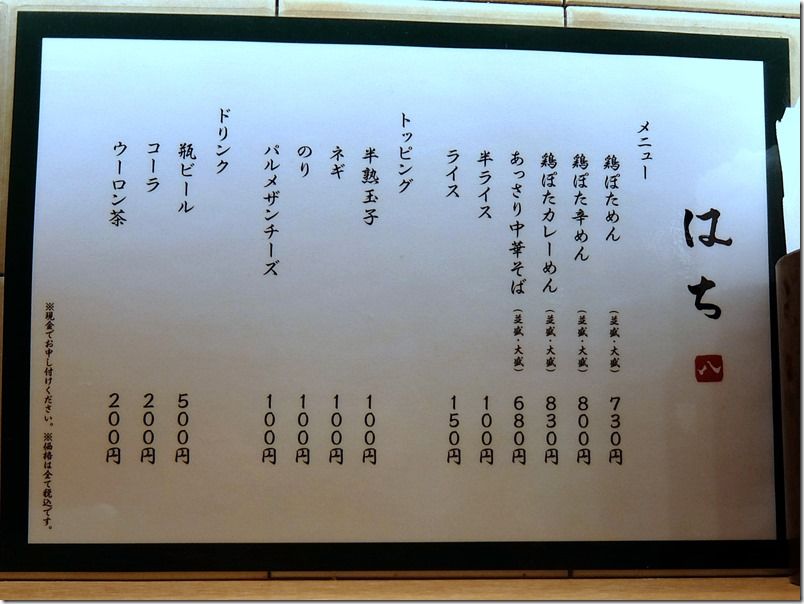 はち
八
メニュー
鶏ぽためん (並盛・大盛) 730円
鶏ぽた辛めん (並盛・大盛) 800円
鶏ぽたカレーめん (並盛・大盛) 830円
あっさり中華そば (並盛・大盛) 680円
半ライス 100円
ライス 150円
トッピング
半熟玉子 100円
ネギ 100円
のり 100円
パルメザンチーズ 100円
ドリンク
瓶ビール 500円
コーラ 200円
ウーロン茶 200円
※現金でお申し付けください。 ※価格は全て税込です。